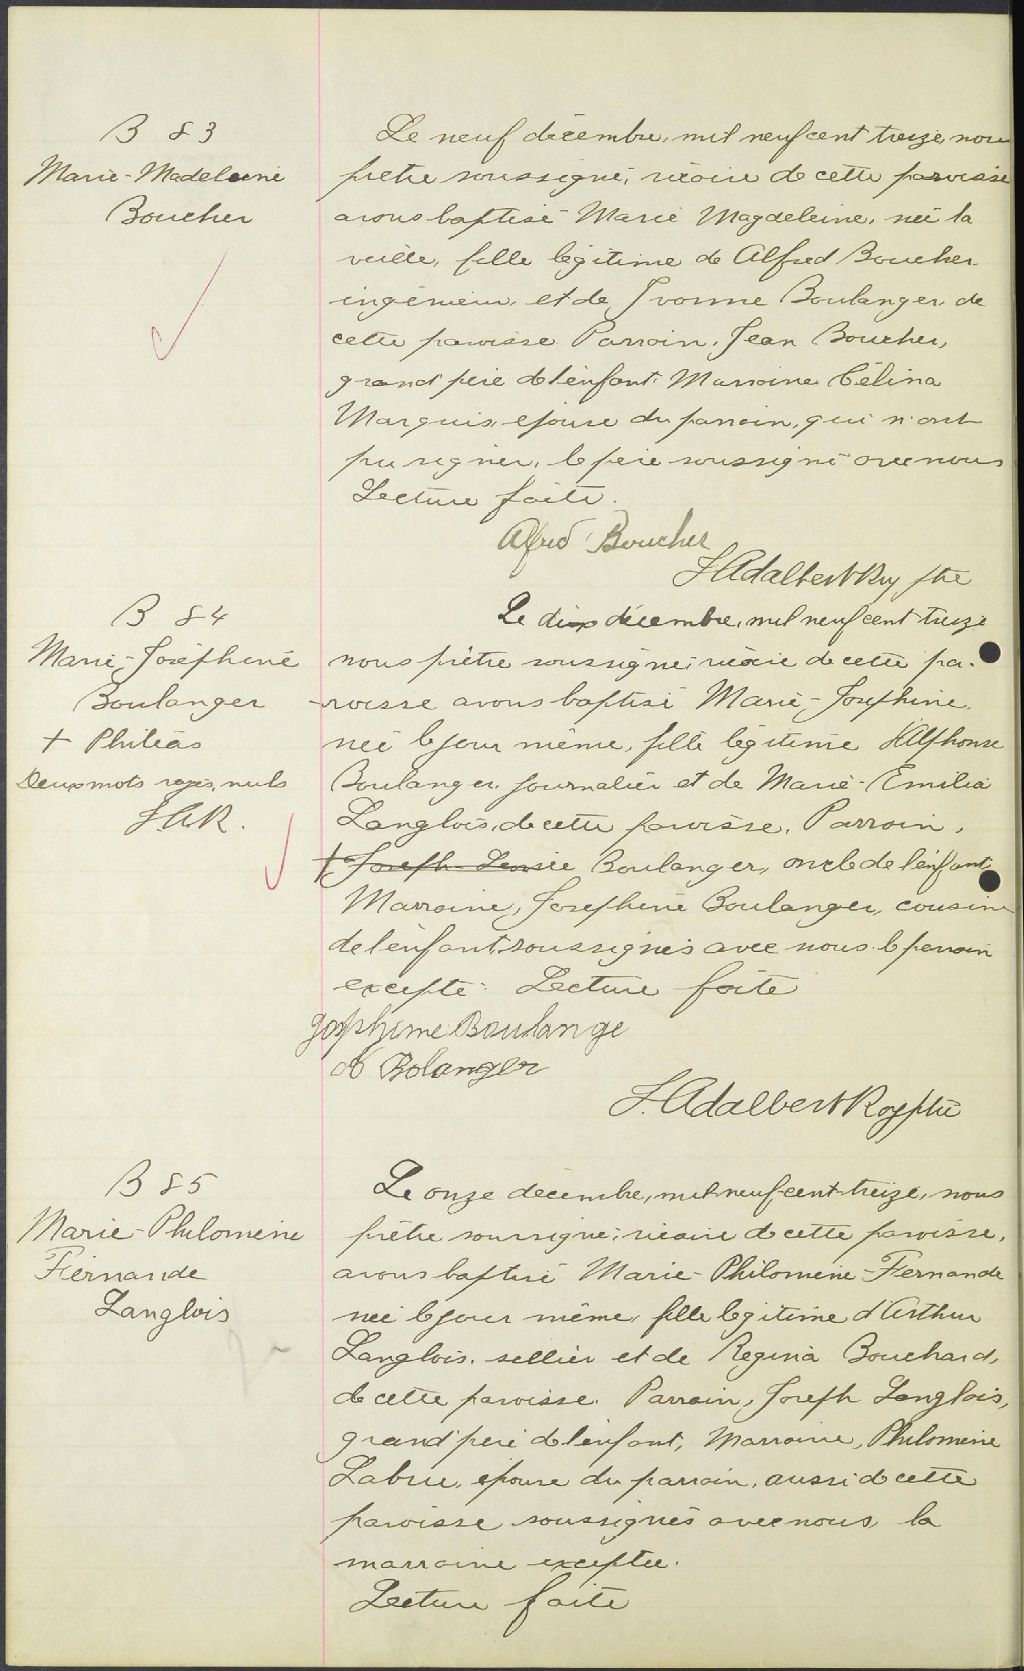 B 83
Marie-Madeleine
Boucher
Le neuf décembre, mil neuf cent treize, nous
prêtre soussigné, vicaire de cette paroisse
avons baptisé Marie Magdeleine, née la
veille, fille légitime de Alfred Boucher
ingénieur, et de Yvonne Boulanger, de
cette paroisse Parrain, Jean Boucher,
grand père de l'enfant. Marraine Célina
Marquis, épouse du parrain, qui n'ont
pu signer, le père soussigné avec nous
Lecture faite.
Alfred Boucher
J Adalbert Roy ptre
B 84
Marie-Joséphine
Boulanger
+ Philéas
Deux mots rayés, nuls
J A R.
Le dix décembre, mil neuf cent treize
nous prêtre soussigné, vicaire de cette pa-
-roisse avons baptisé Marie-Joséphine,
née le jour même, fille légitime d'Alphonse
Boulanger, journalier et de Marie-Emilia
Langlois, de cette paroisse. Parrain,
+ Joseph Boulanger, oncle de l'enfant,
Marraine, Joséphine Boulanger, cousine
de l'enfant, soussignés avec nous le parrain
excepté. Lecture faite
Josphime Boulange
A Bolanger
J. Adalbert Roy ptre
B 85
Marie-Philomène
Fernande
Langlois
Le onze décembre, mil neuf-cent-treize, nous
prêtre soussigné, vicaire de cette paroisse,
avons baptisé Marie-Philomène-Fernande
née le jour même, fille légitime d'Arthur
Langlois, sellier et de Régina Bouchard,
de cette paroisse. Parrain, Joseph Langlois,
grand'père de l'enfant, Marraine, Philomène
Labrie, épouse du parrain, aussi de cette
paroisse soussignés avec nous, la
marraine exceptée.
Lecture faite